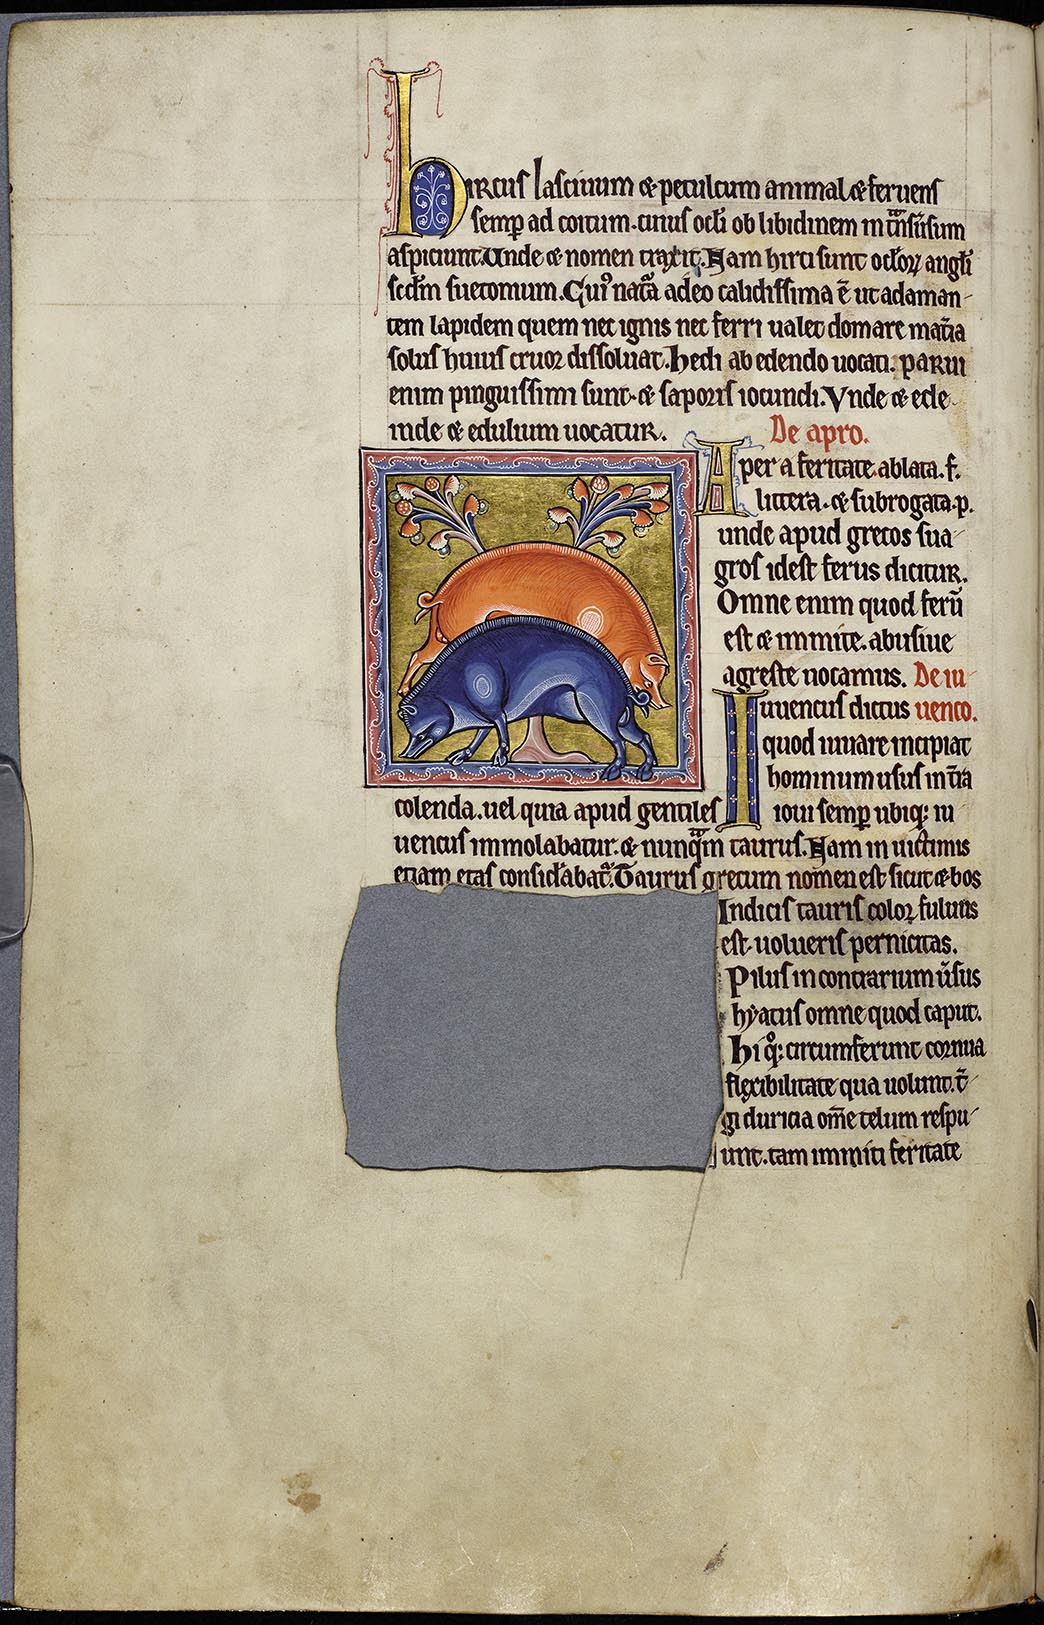 hircus lasciuum & petulcum animal & feruens
semp̄ ad coitum. cuius oc̄li ob libidinem in tᷓnsūsum
aspiciunt. Unde & nomen traxit. Nam hirci sunt oc̄loꝝ angl̄i
sc̄dm suetonium. Cuiꝰ natᷓa adeo calidissima ē ut adaman-
tem lapidem quem nec ignis nec ferri ualet domare mat̄ia
solus huius cruor dissoluat. Hedi ab edendo uocati. parui
enim pinguissimi sunt. & saporis iocundi. Vnde & ede
inde & edulium uocatur.
De apro.
Aper a feritate. ablata .f.
littera. & subrogata .p.
unde apud grecos sua-
gros idest ferus dicitur.
Omne enim quod ferū
est & inmite. abusiue
agreste uocamus. De iu-
Iuuencus dictus uenco.
quod iuuare incipiat
hominum usus in t̄ra
colenda. uel quia apud gentiles
ioui semp̄ ubiqꝫ iu-
uencus immolabatur. & nunqᷓm taurus. Nam in uictimis
etiam etas considˈabatᷓ. Taurus grecum nomen est sicut & bos
Indicis tauris color fuluus
est. uolucris pernicitas.
Pilus in contrarium ūsus
hyatus omne quod caput.
Hi qͦꝫ circumferunt cornua
flexibilitate qua uolunt. t̄-
gi duricia om̄e telum respu-
unt. tam immiti feritate